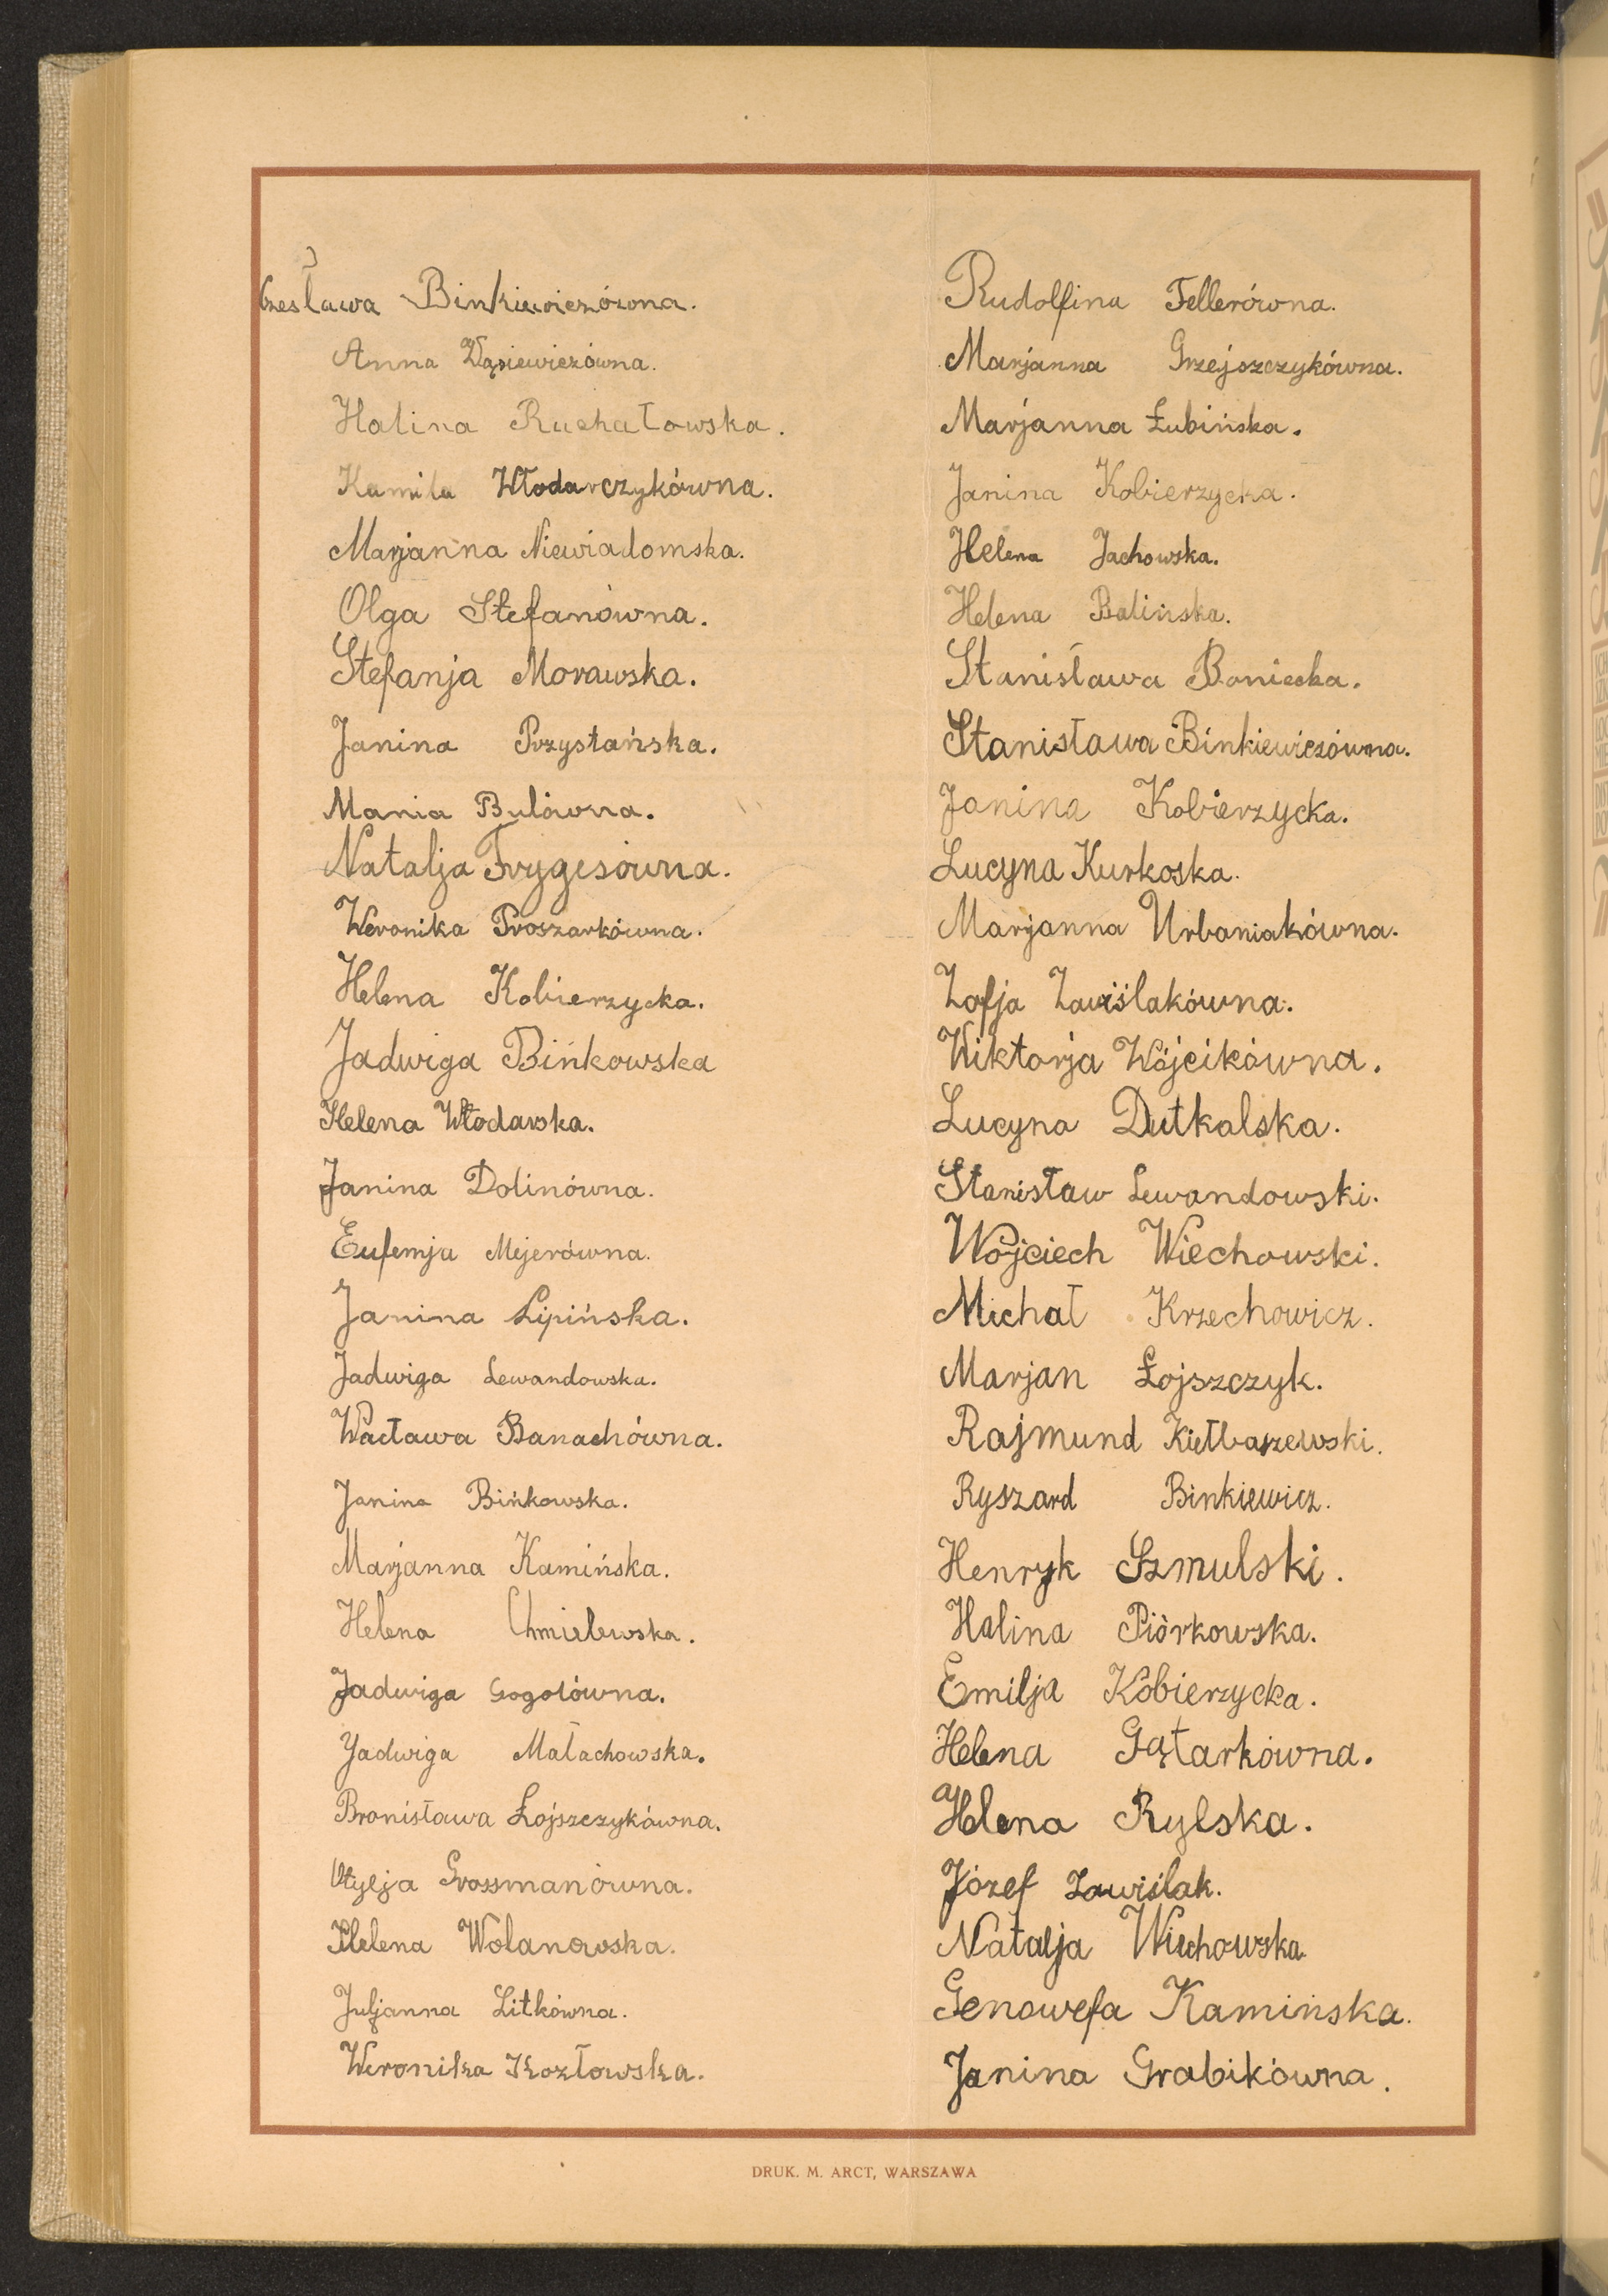 Czesława Binkiewiczówna.
Anna Wąsiewiczówna.
Halina Ruchałowska.
Kamila Włodarczykówna.
Marjanna Niewiadomska.
Olga Stefanówna.
Stefanja Morawska.
Janina Przystańska.
Mania Bulówna.
Natalja Frygesówna.
Weronika Proszarkówna.
Helena Kobierzycka.
Jadwiga Bińkowska
Helena Włodarska.
Janina Dolinówna.
Eufemja Mejerówna.
Janina Lipińska.
Jadwiga Lewandowska.
Wacława Banachówna.
Janina Bińkowska.
Marjanna Kamińska.
Helena Chmielewska.
Jadwiga Gogolówna.
Jadwiga Małachowska.
Bronisława Łojszczykówna.
Otylja Grossmanówna.
Helena Wolanowska.
Juljanna Litkówna.
Weronika Kozłowska.
Rudolfina Fellerówna.
Marjanna Grzejszczykówna.
Marjanna Łubińska.
Janina Kobierzycka.
Helena Jachowska.
Helena Balińska.
Stanisława Boniecka.
Stanisława Binkiewiczówna.
Janina Kobierzycka.
Lucyna Kurkoska.
Marjanna Urbaniakówna.
Zofja Zawiślakówna.
Wiktorja Wójcikówna.
Lucyna Dutkalska.
Stanisław Lewandowski.
Wojciech Wiechowski.
Michał Krzechowicz.
Marjan Łojszczyk.
Rajmund Kiełbaszewski.
Ryszard Binkiewicz.
Henryk Szmulski.
Halina Piórkowska.
Emilja Kobierzycka.
Helena Gątarkówna.
Helena Rylska.
Józef Zawiślak.
Natalja Wiechowska
Genowefa Kamińska.
Janina Grabikówna.
DRUK. M. ARCT, WARSZAWA